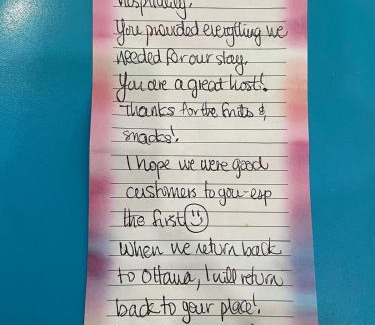 hospitality.
You provided everything we
needed for our stay.
You are a great host!
Thanks for the fruits &
snacks!
I hope we were good
customers to you-esp
the first ☺
When we return back
to Ottawa, I will return
back to your place!